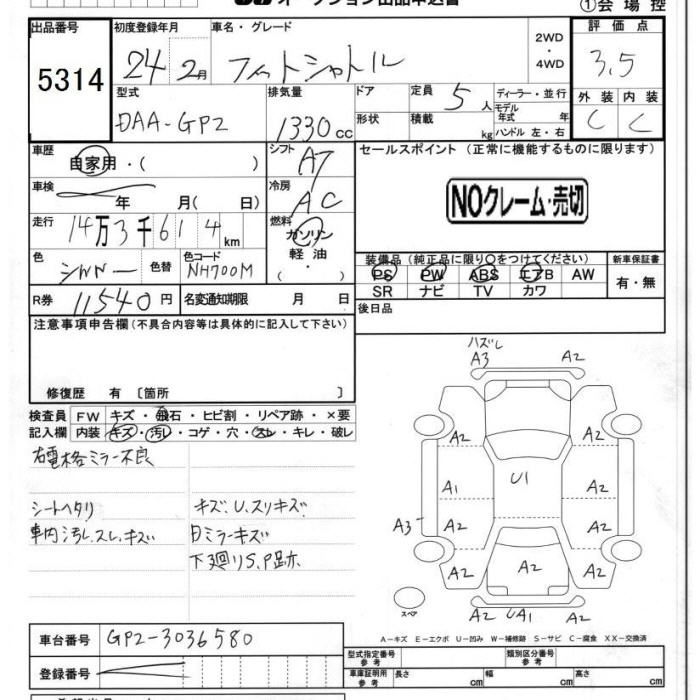 オークション出品申込書 ①会場控
出品番号 初度登録年月 車名・グレード 2WD 評価点
5314 24年 2月 フィットシャトル ・4WD 3.5
型式 排気量 ドア 定員 5人 ディーラー・並行 外装 内装
DAA-GP2 1330cc 形状 積載 kg モデル年式 年 C C
ハンドル 左・右
車歴 自家用・( ) シフト AT セールスポイント (正常に機能するものに限ります)
車検 年 月( 日) 冷房 AC NOクレーム・売切
走行 14万3千614km 燃料 ガソリン
軽油
( ・ )
色 シルバー 色替 色コード NH700M
装備品 (純正品に限り○をつけてください) 新車保証書
PS PW ABS エアB AW 有・無
SR ナビ TV カワ
R券 11540円 名変通知期限 月 日 後日品
注意事項申告欄(不具合内容等は具体的に記入して下さい)
修復歴 有 〔箇所 〕
検査員 FW キズ・飛石・ヒビ割・リペア跡・×要
記入欄 内装 キズ・汚れ・コゲ・穴・スレ・キレ・破レ
右電格ミラー不良
シートヘタリ キズU、スリキズ
車内汚レ、スレ、キズ 日ミラーキズ
下廻りS,P跡
ハズレ
A3 A2
A2 A2
A1 U1 A2
A3 A2 A2
A2 A2 A2
スペア A2 UA1 A2
A-キズ E-エクボ U-凹み W-補修跡 S-サビ C-腐食 XX-交換済
車台番号 GP2-3036580
型式指定番号 参考 類別区分番号 参考
登録番号 車庫証明用 参考 長さ cm 幅 cm 高さ cm